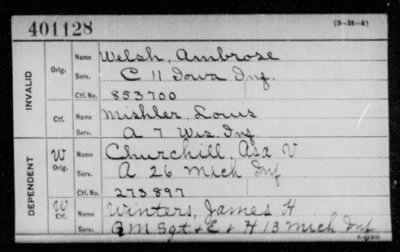 401128 (3-31-4)
INVALID
Orig. Name Welsh, Ambrose
Serv. C 11 Iowa Inf.
Ctf. No. 853700
Ctf. Name Mishler, Louis
Serv. A 7 Wis. Inf.
DEPENDENT
W Orig. Name Churchill, Asa V
Serv. A 26 Mich Inf
Ctf. No. 273897
W Ctf. Name Winters, James H
Serv. Q M Sgt & E & H 13 Mich Inf